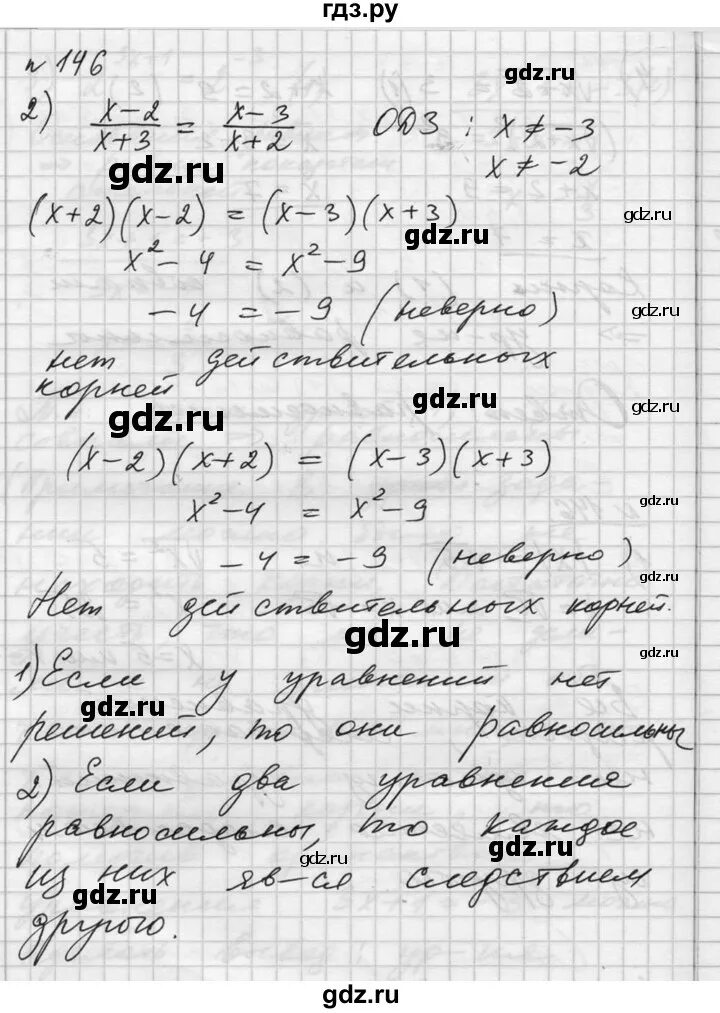 гдз.ру
n 146
2) (x-2)/(x+3) = (x-3)/(x+2) ОДЗ: x ≠ -3
x ≠ -2
gdz.ru
gdz.ru
(x+2)(x-2) = (x-3)(x+3)
gdz.ru
gdz.ru
x² - 4 = x² - 9
- 4 = - 9 (неверно)
gdz.ru
нет действительных
корней
gdz.ru
gdz.ru
gdz.ru
(x-2)(x+2) = (x-3)(x+3)
x² - 4 = x² - 9
gdz.ru
- 4 = - 9 (неверно)
gdz.ru
Нет действительных корней.
gdz.ru
gdz.ru
1) Если у уравнений нет
gdz.ru
решений, то они равносильны
2) Если два уравнения
равносильны, то каждое
gdz.ru
gdz.ru
из них яв-ся следствием
gdz.ru
другого.
gdz.ru
gdz.ru